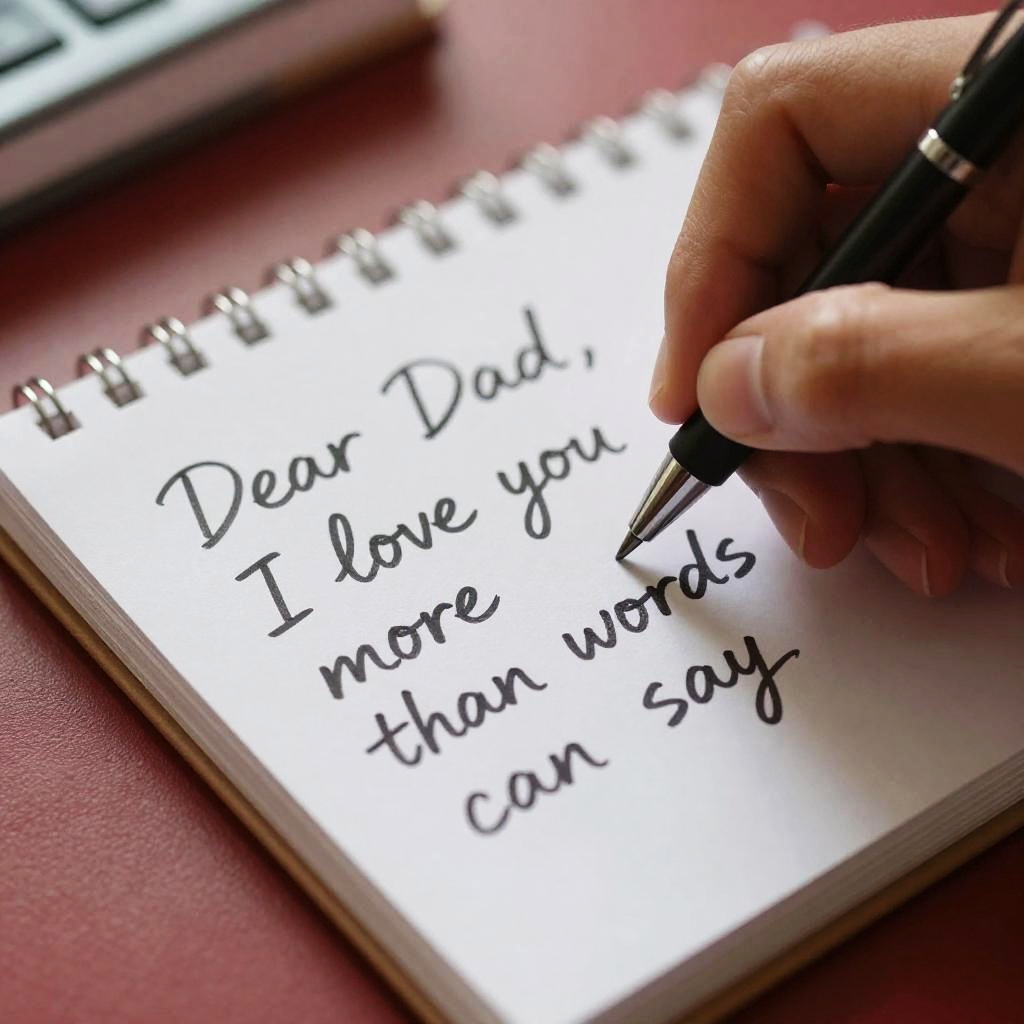 Dear Dad,
I love you
more
than words
can say